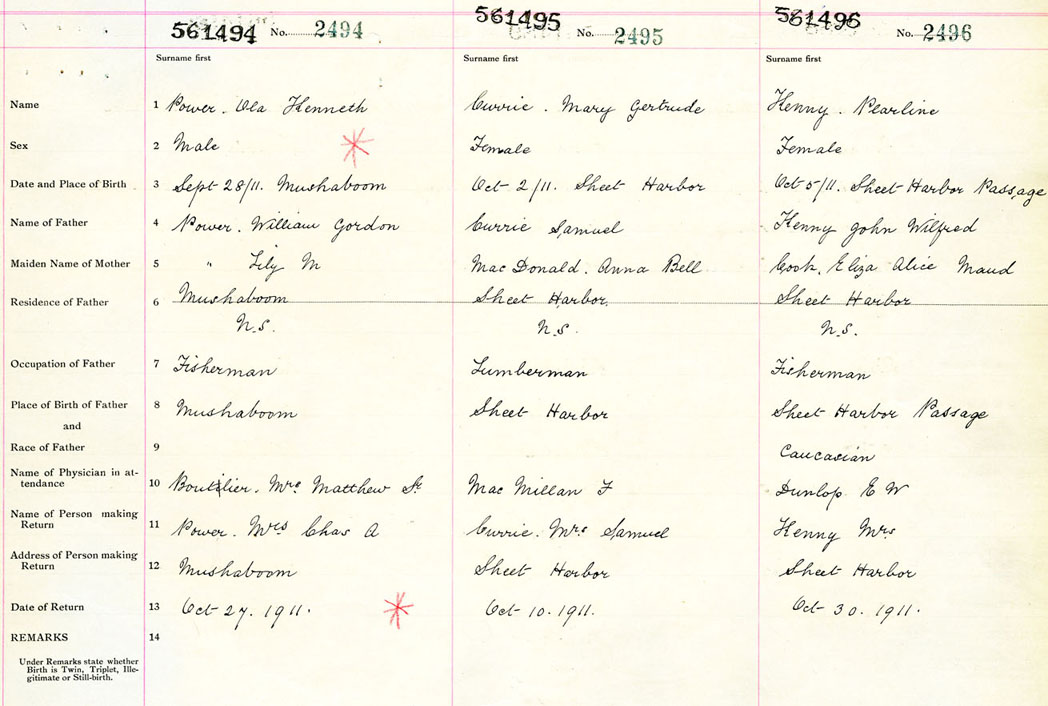 561494 No. 2494 561495 No. 2495 561496 No. 2496
Surname first Surname first Surname first
Name 1 Power. Ola Kenneth Currie. Mary Gertrude Kenny. Pearline
Sex 2 Male Female Female
Date and Place of Birth 3 Sept 28/11. Mushaboom Oct 2/11. Sheet Harbor Oct 5/11. Sheet Harbor Passage
Name of Father 4 Power. William Gordon Currie Samuel Kenny John Wilfred
Maiden Name of Mother 5 " Lily M Mac Donald. Anna Bell Cook. Eliza Alice Maud
Residence of Father 6 Mushaboom Sheet Harbor Sheet Harbor
N.S. N.S. N.S.
Occupation of Father 7 Fisherman Lumberman Fisherman
Place of Birth of Father 8 Mushaboom Sheet Harbor Sheet Harbor Passage
and
Race of Father 9 Caucasian
Name of Physician in at-
tendance 10 Boutilier. Mrs Matthew Sr Mac Millan F Dunlop E W
Name of Person making
Return 11 Power. Mrs Chas A Currie. Mrs Samuel Kenny Mrs
Address of Person making
Return 12 Mushaboom Sheet Harbor Sheet Harbor
Date of Return 13 Oct 27. 1911. Oct 10. 1911. Oct 30. 1911.
REMARKS 14
Under Remarks state whether
Birth is Twin, Triplet, Ille-
gitimate or Still-birth.